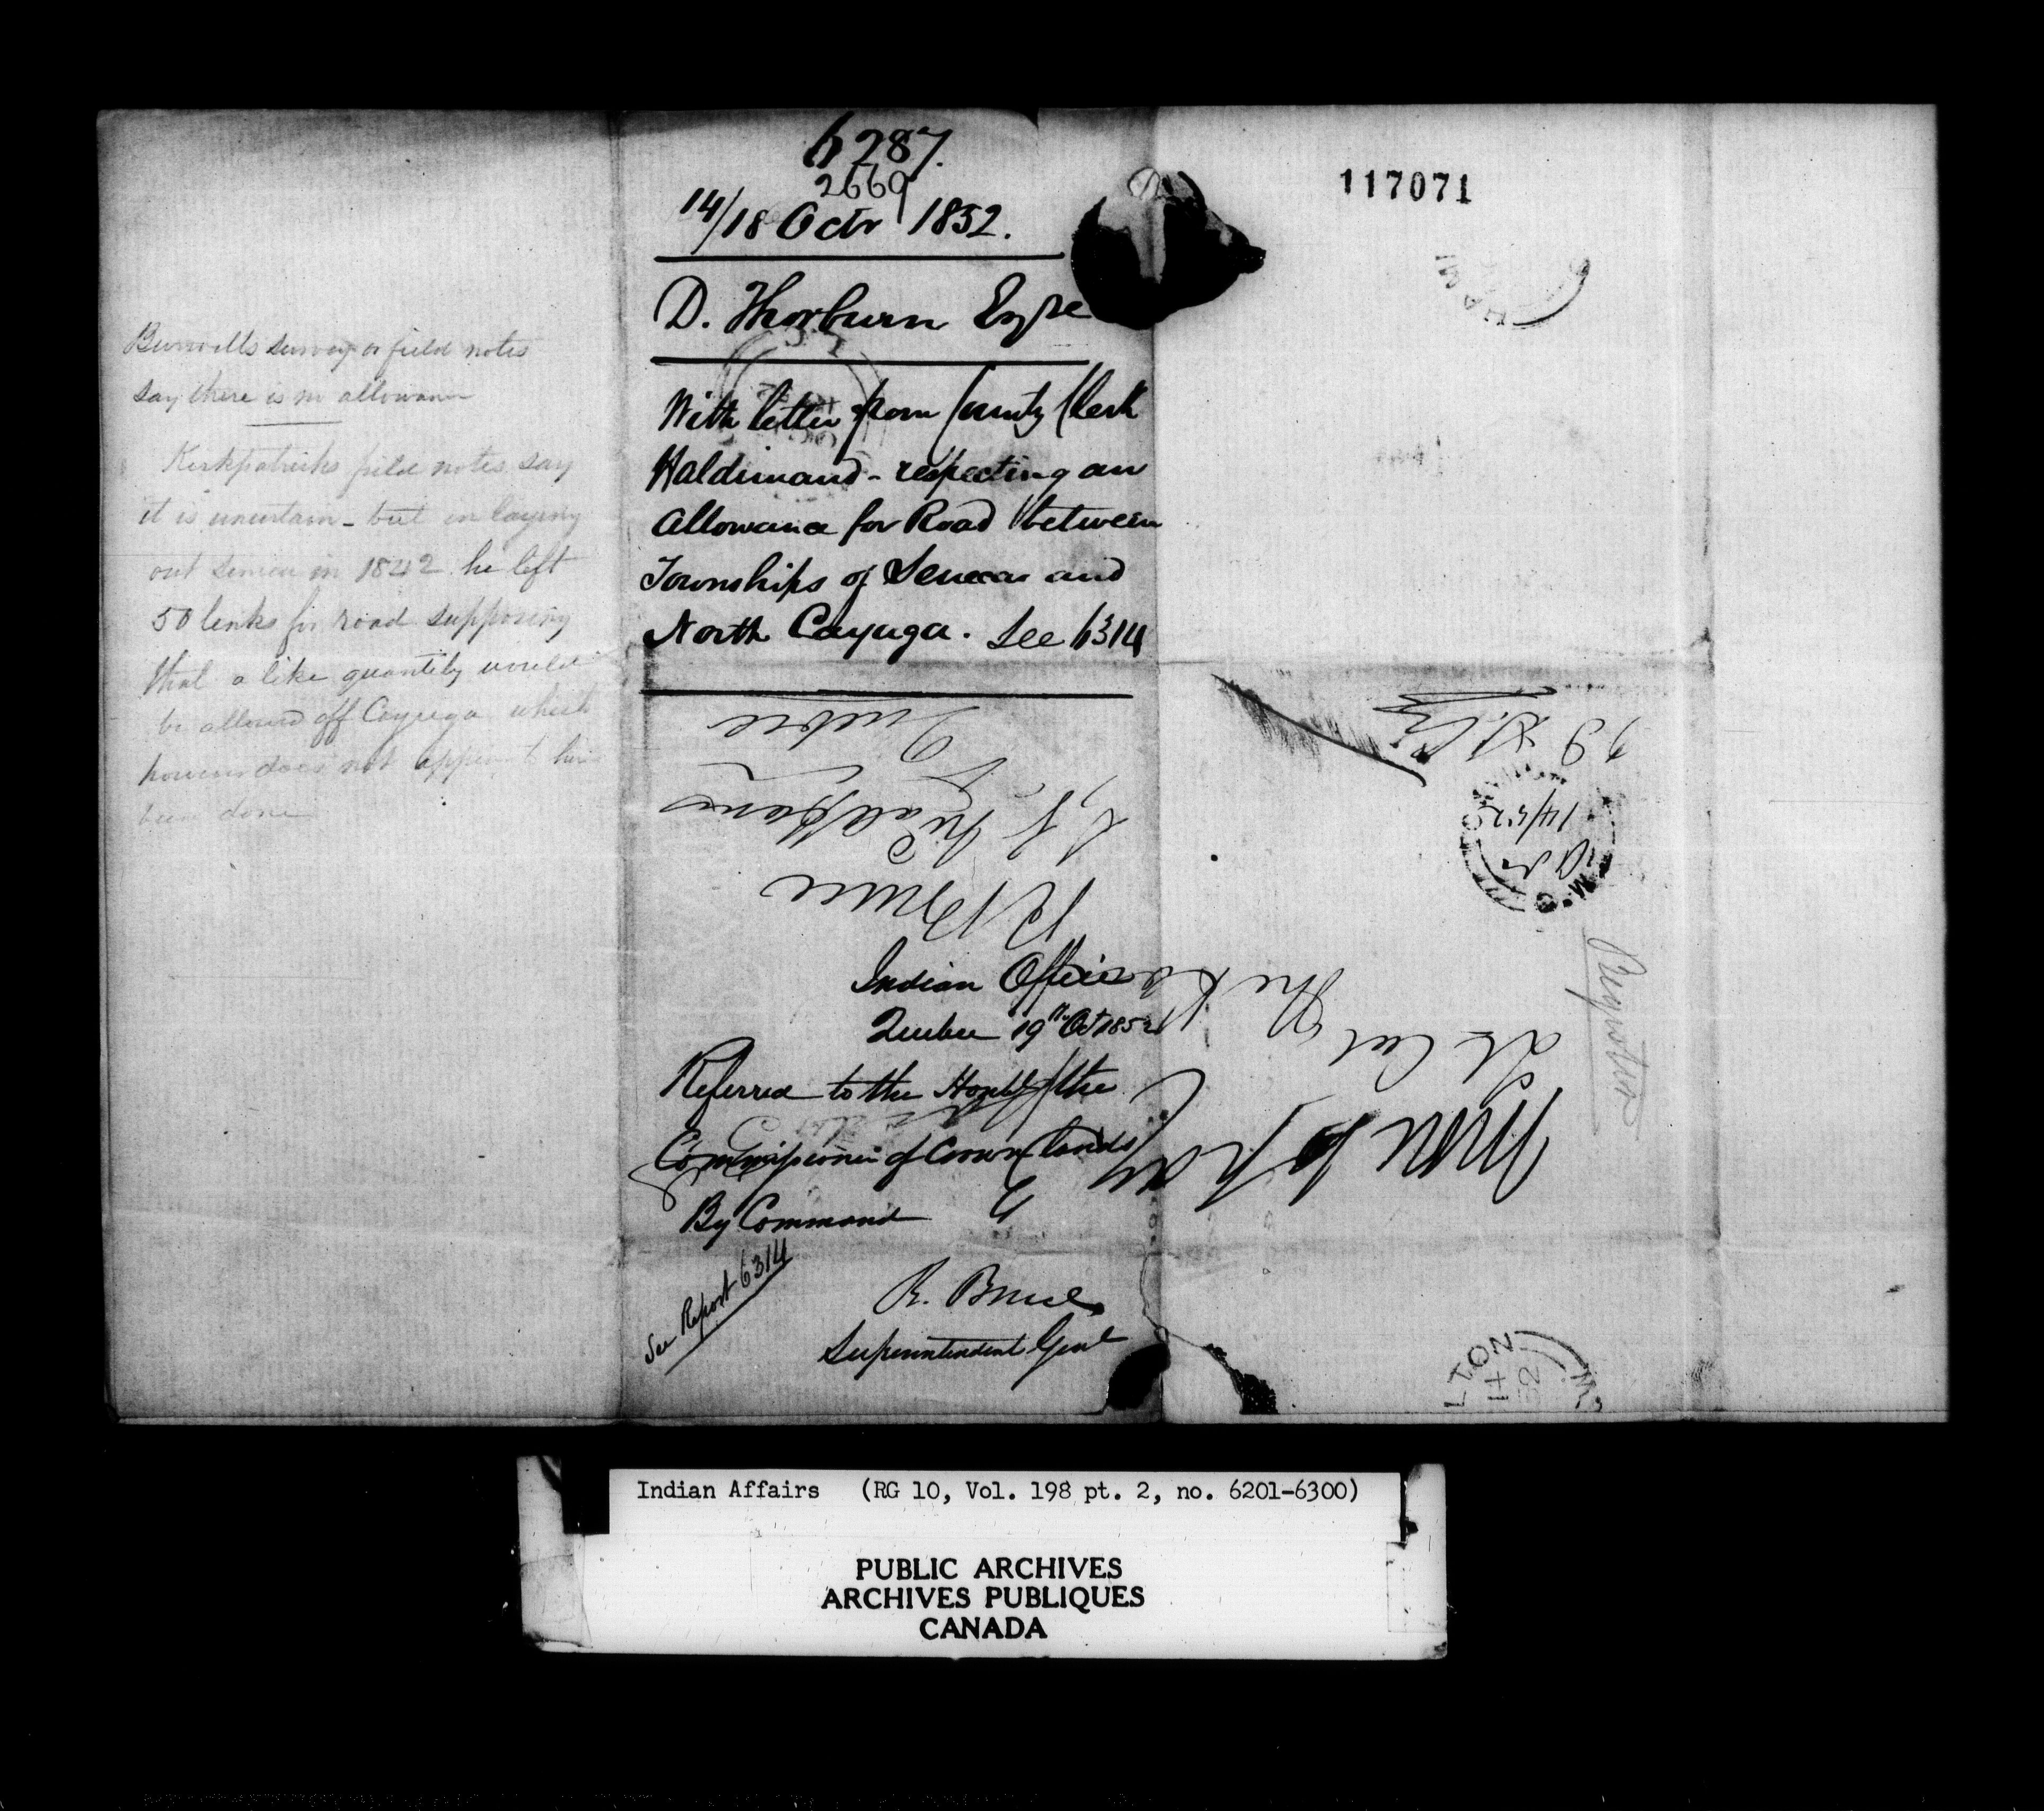 Burwells survey or field notes
say there is no allowance
Kirkpatricks field notes say
it is uncertain - but in laying
out Seneca in 1842 he left
50 links for road supposing
that a like quantity would
be allowed off Cayuga which
however does not appear to have
been done
6287.
2669
14/18 Octr 1852.
D. Thorburn Esqre
With letter from County Clerk
Haldimand - respecting an
Allowance for Road between
Townships of Seneca and
North Cayuga. See 6314
Indian Office
Quebec 19th Oct 1852
Referred to the Honble the
Commissioner of Crown Lands
By Command
R. Bruce
Superintendent Genl
See Report 6314
The Hon
Lt Col
R Bruce
Quebec
117071
HAMI
14/52
LTON
14
52